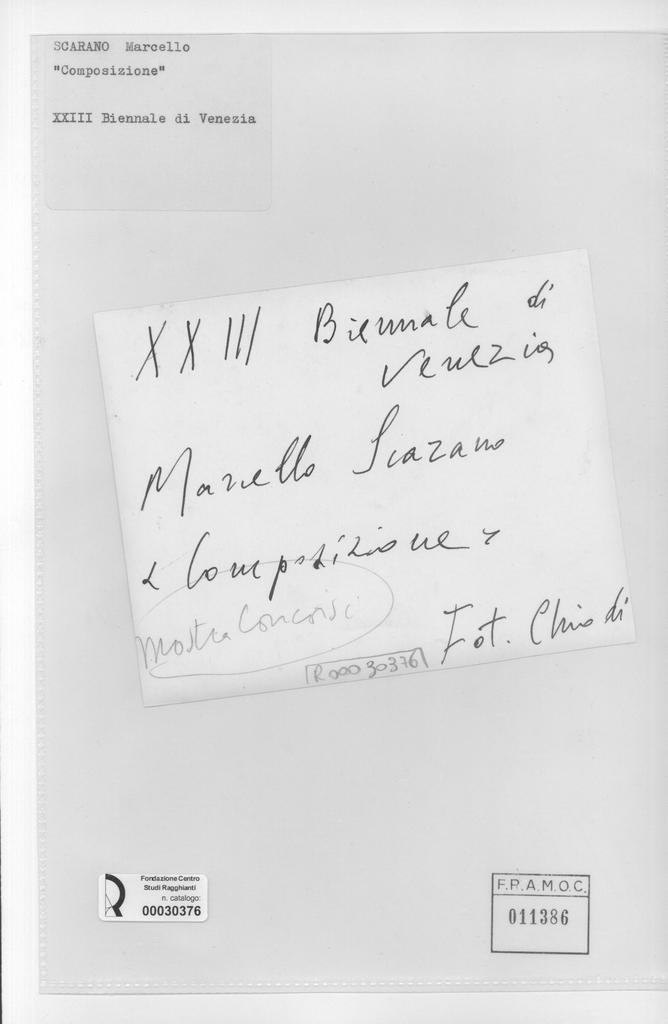 SCARANO Marcello
"Composizione"
XXIII Biennale di Venezia
XXIII Biennale di
Venezia
Marcello Scarano
« Composizione »
Mostra Concorsi
Fot. Chiodi
R00030376
Fondazione Centro
Studi Ragghianti
n. catalogo:
00030376
F.R.A.M.O.C.
011386